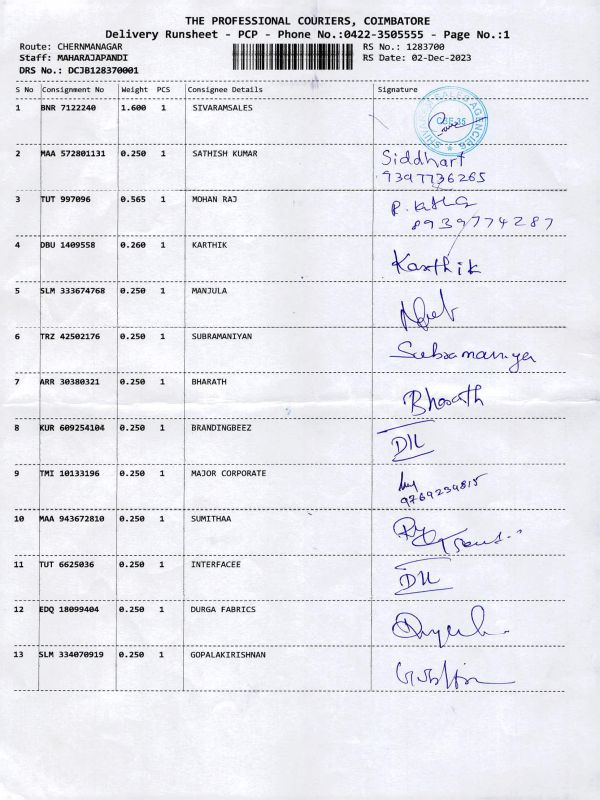 THE PROFESSIONAL COURIERS, COIMBATORE
Delivery Runsheet - PCP - Phone No.:0422-3505555 - Page No.:1
Route: CHERNMANAGAR RS No.: 1283700
Staff: MAHARAJAPANDI RS Date: 02-Dec-2023
DRS No.: DCJB128370001
S No Consignment No Weight PCS Consignee Details Signature
1 BNR 7122240 1.600 1 SIVARAMSALES
2 MAA 572801131 0.250 1 SATHISH KUMAR Siddhart
9397736265
3 TUT 997096 0.565 1 MOHAN RAJ
8939774287
4 DBU 1409558 0.260 1 KARTHIK Karthik
5 SLM 333674768 0.250 1 MANJULA
6 TRZ 42502176 0.250 1 SUBRAMANIYAN Subramaniya
7 ARR 30380321 0.250 1 BHARATH Bharath
8 KUR 609254104 0.250 1 BRANDINGBEEZ
9 TMI 10133196 0.250 1 MAJOR CORPORATE
9769239815
10 MAA 943672810 0.250 1 SUMITHAA
11 TUT 6625036 0.250 1 INTERFACEE
12 EDQ 18099404 0.250 1 DURGA FABRICS
13 SLM 334070919 0.250 1 GOPALAKIRISHNAN